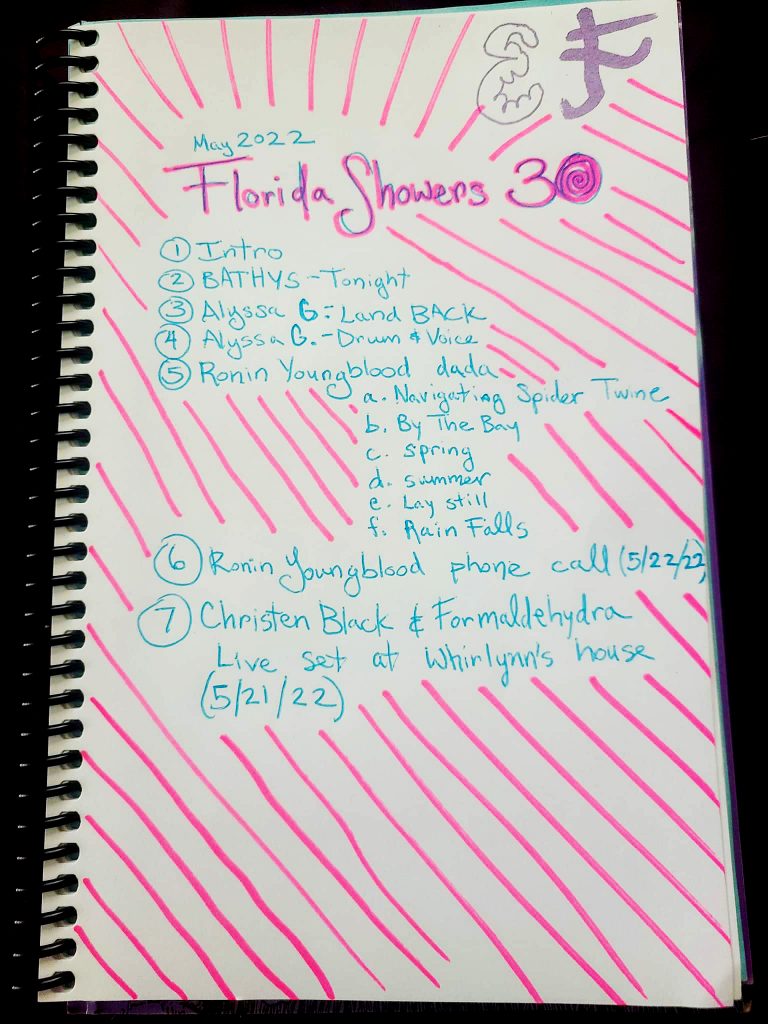 May 2022
Florida Showers 30
① Intro
② BATHYS - Tonight
③ Alyssa G: Land BACK
④ Alyssa G. - Drum & Voice
⑤ Ronin Youngblood dada
a. Navigating Spider Twine
b. By The Bay
c. Spring
d. summer
e. Lay still
f. Rain Falls
⑥ Ronin Youngblood phone call (5/22/22)
⑦ Christen Black & Formaldehydra
Live set at Whirlynn's house
(5/21/22)